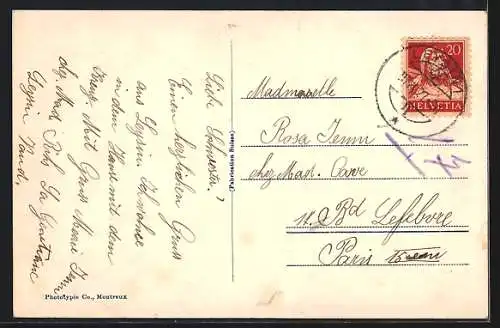 Liebe Schwester!
Einen herzlichen Gruss
aus Leysin. Ich wohne
in dem Haus mit dem
Kreuz. Mit Gruss Marie Jenni
chez Mad.
Leysin Vaud.
Phototypie Co., Montreux
(Fabrication Suisse)
20
HELVETIA
Mademoiselle
Rosa Jenni
chez Mad. Cave
11. Bd Lefebvre
Paris